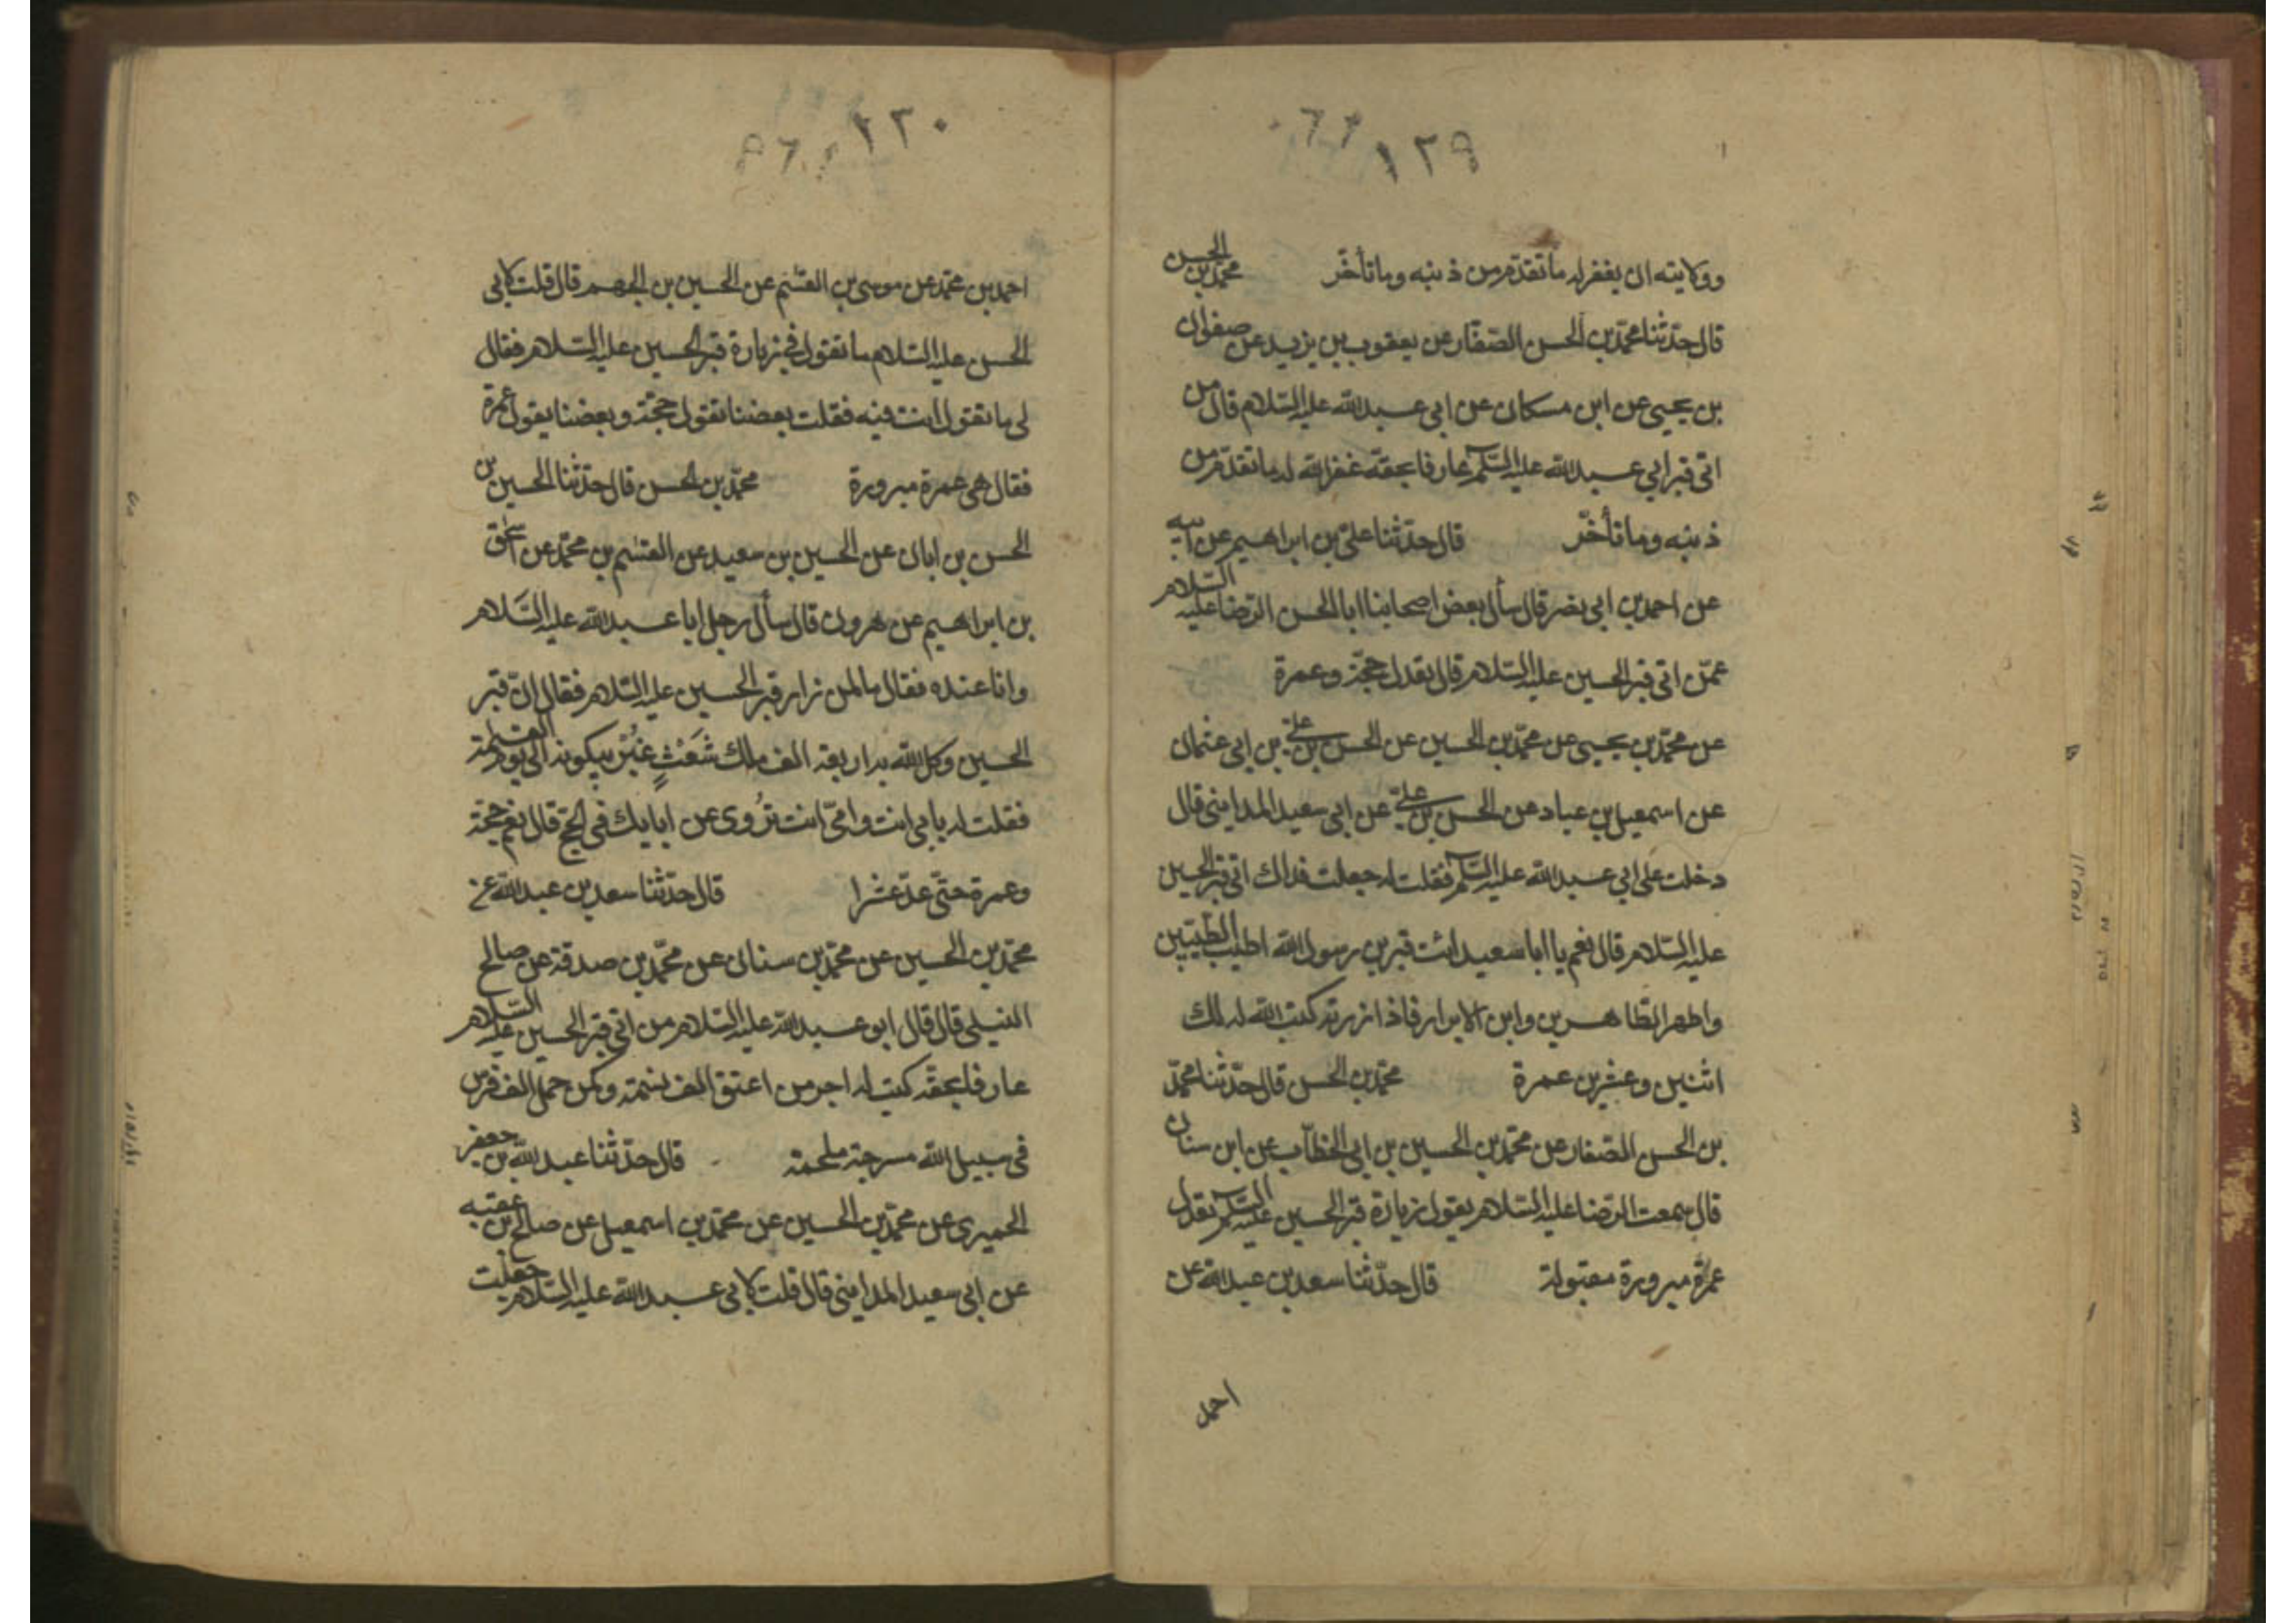 ١٢٩
وولايته ان يغفر له ما تقدّم من ذنبه وما تأخّر محمّد بن الحسن
قال حدّثنا محمّد بن الحسن الصفّار عن يعقوب بن يزيد عن صفوان
بن يحيى عن ابن مسكان عن ابي عبد الله عليه السّلام قال من
اتى قبر ابي عبد الله عليه السّلم عارفا بحقّه غفر الله له ما تقدّم من
ذنبه وما تأخّر قال حدّثنا علىّ بن ابراهيم عن ابيه
عن احمد بن ابي نصر قال سأل بعض اصحابنا ابا الحسن الرّضا عليه السّلام
عمّن اتى قبر الحسين عليه السّلام قال تعدل حجّة وعمرة
عن محمّد بن يحيى عن محمّد بن الحسين عن الحسن بن علىّ بن ابي عثمان
عن اسمعيل بن عباد عن الحسن بن علىّ عن ابي سعيد المدايني قال
دخلت على ابي عبد الله عليه السّلم فقلت له جعلت فداك اتى قبر الحسين
عليه السّلام قال نعم يا ابا سعيد ائت قبر بن رسول الله اطيب الطّيّبين
واطهر الطّاهرين وابن الابرار فاذا زرته كتب الله له لك
اثنين وعشرين عمرة محمّد بن الحسن قال حدّثنا محمّد
بن الحسن الصّفار عن محمّد بن الحسين بن ابي الخطّاب عن ابن سنان
قال سمعت الرّضا عليه السّلام يقول زيارة قبر الحسين عليه السّلم تعدل
عمرة مبرورة مقبولة قال حدّثنا سعد بن عبد الله عن
احمد
٢٣٠
احمد بن محمّد عن موسى بن القسم عن الحسين بن الجهم قال قلت لابي
الحسن عليه السّلام ما تقول في زيارة قبر الحسين عليه السّلام فقال
لى ما تقول انت فيه فقلت بعضنا تقول حجّة وبعضنا يقول عمرة
فقال هي عمرة مبرورة محمّد بن الحسن قال حدّثنا الحسين بن
الحسن بن ابان عن الحسين بن سعيد عن القسم بن محمّد عن اسحق
بن ابراهيم عن هرون قال سأل رجل ابا عبد الله عليه السّلام
وانا عنده فقال ما لمن زار قبر الحسين عليه السّلام فقال انّ قبر
الحسين وكل الله به اربعة الف ملك شعث غبر يبكونه الى يوم القيمة
فقلت له بابى انت وامّى انت تروى عن ابايك في الحجّ قال نعم حجّة
وعمرة حتّى عدّ عشرا قال حدّثنا سعد بن عبد الله عن
محمّد بن الحسين عن محمّد بن سنان عن محمّد بن صدقة عن صالح
النيلى قال قال ابو عبد الله عليه السّلام من اتى قبر الحسين عليه السّلام
عارفا بحقّه كتب له اجر من اعتق الف نسمة وكمن حمل الف فرس
في سبيل الله مسرجة ملجمة قال حدّثنا عبد الله بن جعفر
الحميرى عن محمّد بن الحسين عن محمّد بن اسمعيل عن صالح بن عقبه
عن ابي سعيد المدايني قال قلت لابي عبد الله عليه السّلام جعلت